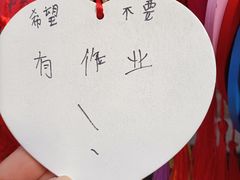 希望 不要
有作业
!